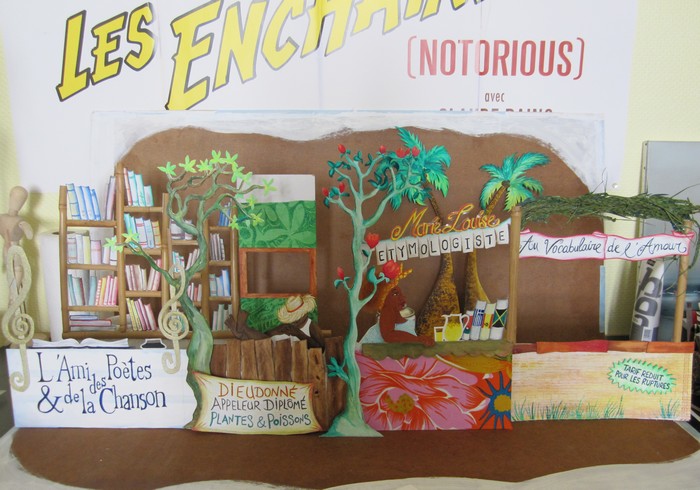 LES ENCHAIN
(NOTORIOUS)
avec
CLAUDE RAINS
Marie Louise
ETYMOLOGISTE
Au Vocabulaire de l'Amour
L'Ami des Poètes
& de la Chanson
DIEUDONNÉ
APPELEUR DIPLÔMÉ
PLANTES & POISSONS
TARIF REDUIT
POUR LES RUPTURES